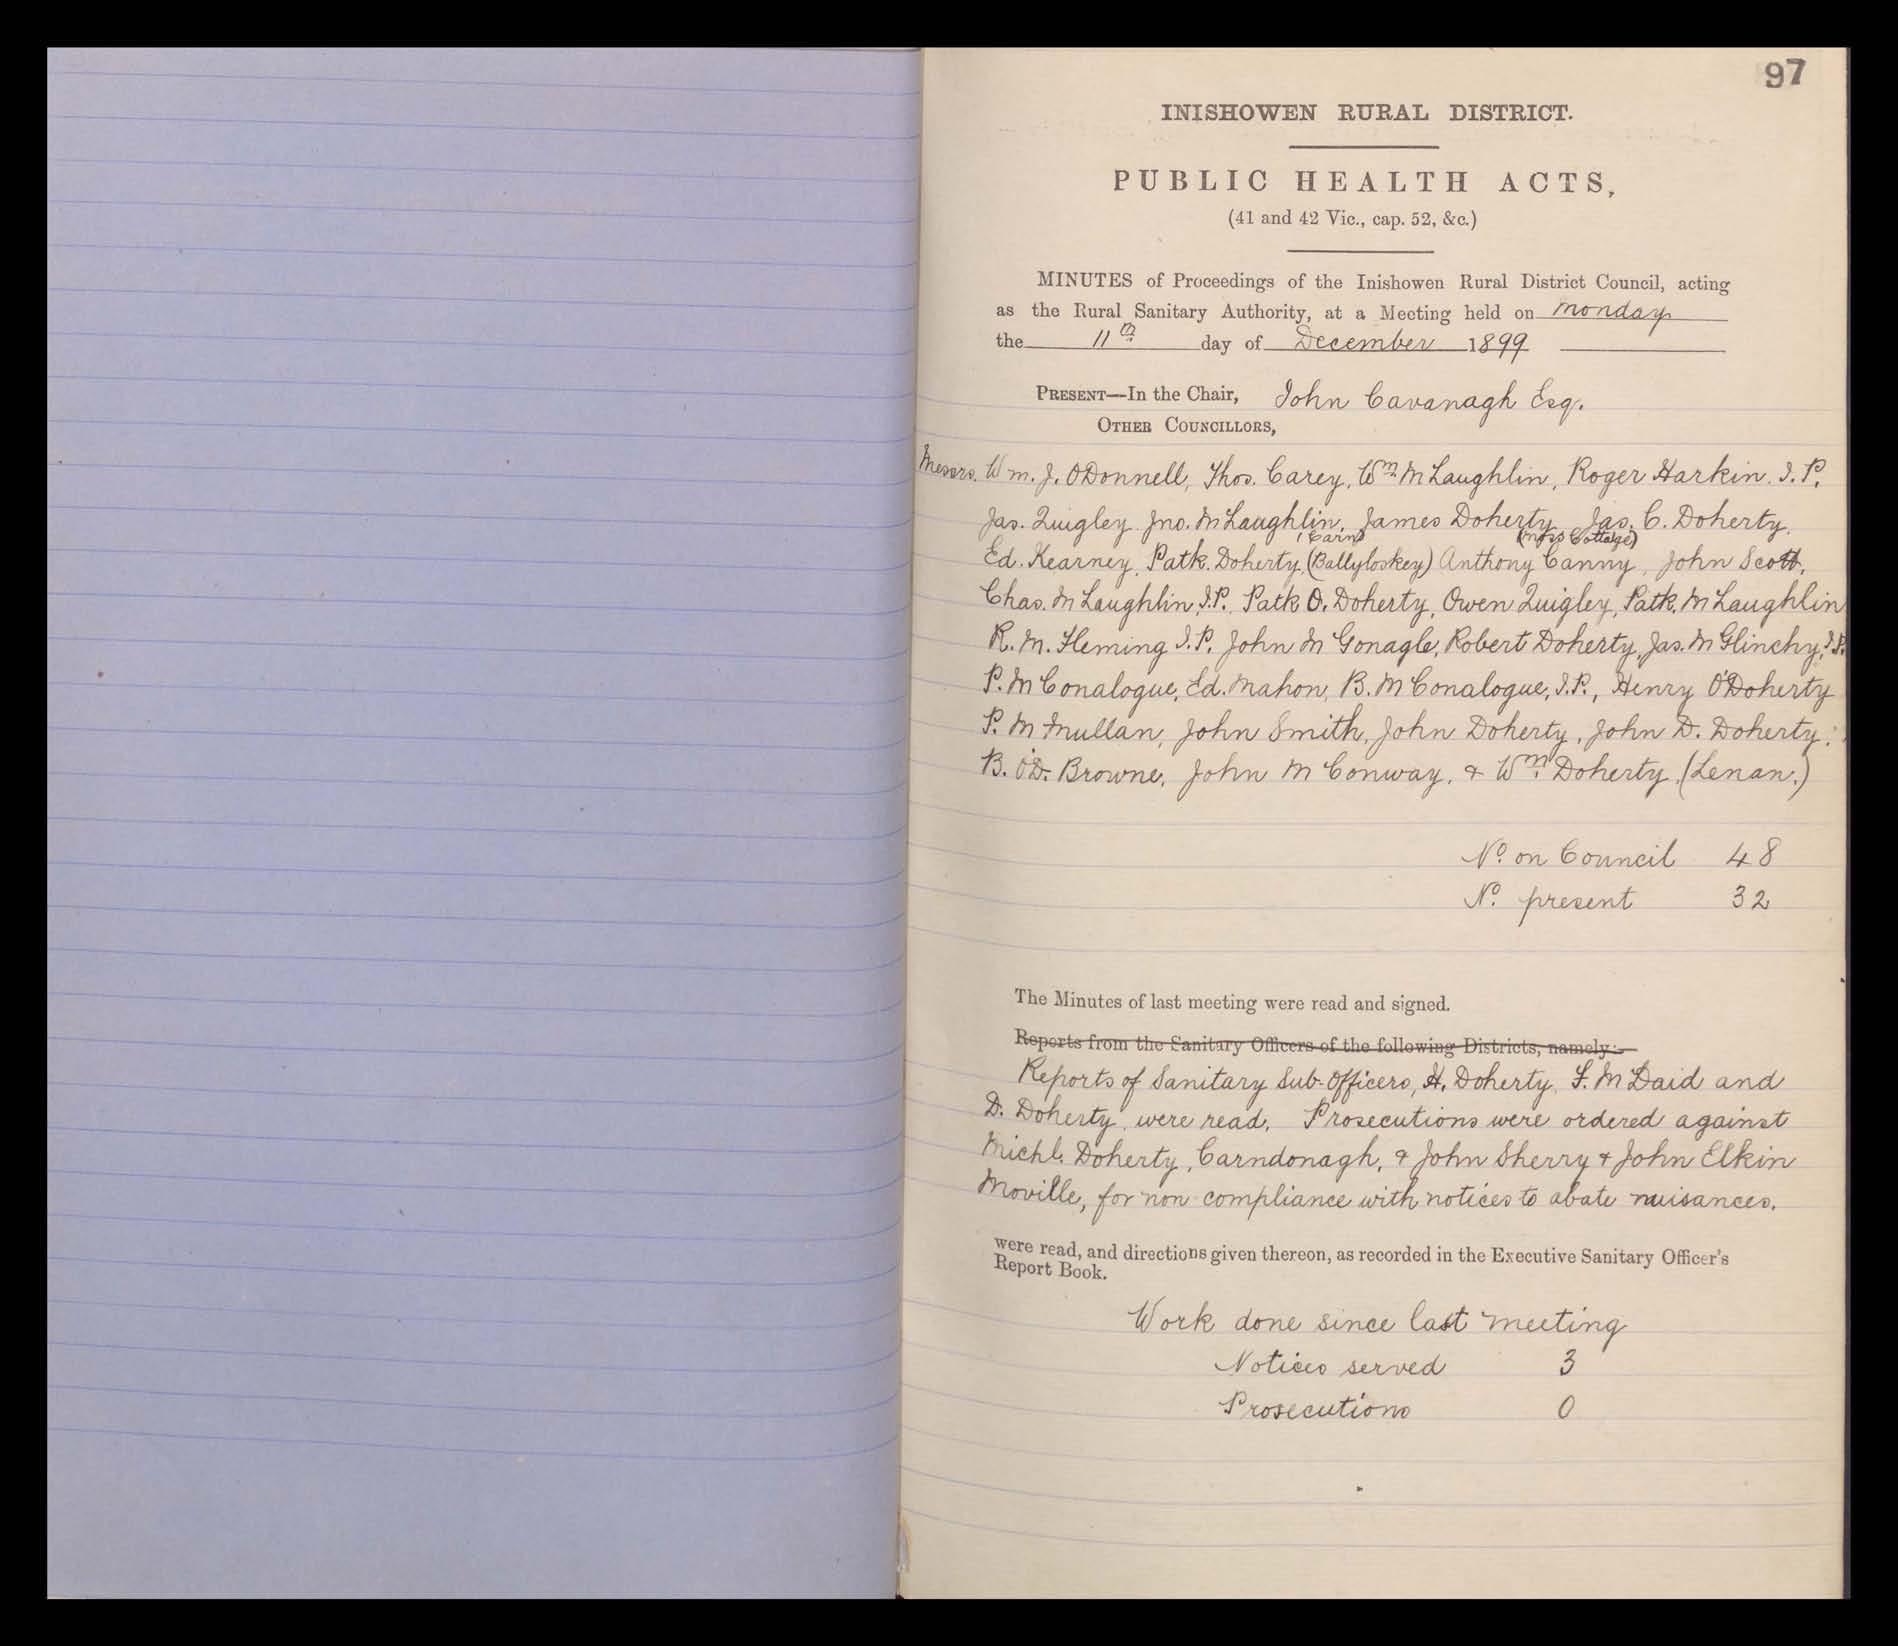 97
INISHOWEN RURAL DISTRICT.
PUBLIC HEALTH ACTS,
(41 and 42 Vic., cap. 52, &c.)
MINUTES of Proceedings of the Inishowen Rural District Council, acting
as the Rural Sanitary Authority, at a Meeting held on Monday
the 11th day of December 1899
PRESENT—In the Chair, John Cavanagh Esq.
OTHER COUNCILLORS,
Messrs. Wm. J. O'Donnell, Thos. Carey, Wm. McLaughlin, Roger Harkin. J.P.
Jas. Quigley Jno. McLaughlin, James Doherty, Jas. C. Doherty.
(Carn) (Moss Cottage)
Ed. Kearney, Patk. Doherty, (Ballyloskey) Anthony Canny, John Scott,
Chas. McLaughlin, J.P., Patk O. Doherty, Owen Quigley, Patk. McLaughlin
R. M. Fleming J.P. John McGonagle, Robert Doherty, Jas. McGlinchy, J.P.
P. McConalogue, Ed. Mahon, B. McConalogue, J.P., Henry O'Doherty
P. McMullan, John Smith, John Doherty, John D. Doherty.
B. O'D. Browne, John McConway, & Wm. Doherty (Lenan.)
No. on Council 48
No. present 32
The Minutes of last meeting were read and signed.
Reports from the Sanitary Officers of the following Districts, namely:—
Reports of Sanitary Sub-Officers, H. Doherty, F. McDaid and
D. Doherty were read. Prosecutions were ordered against
Michl. Doherty, Carndonagh, & John Sherry & John Elkin
Moville, for non compliance with notices to abate nuisances.
were read, and directions given thereon, as recorded in the Executive Sanitary Officer's
Report Book.
Work done since last meeting
Notices served 3
Prosecutions 0